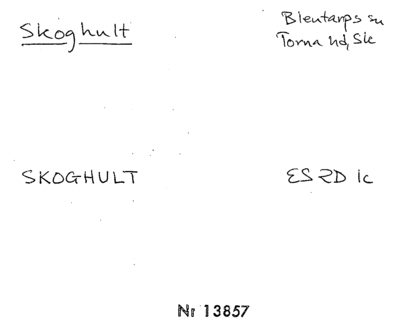 Skoghult
Blentarps sn
Torna hd, Sk
SKOGHULT
ES 2D 1c
Nr 13857